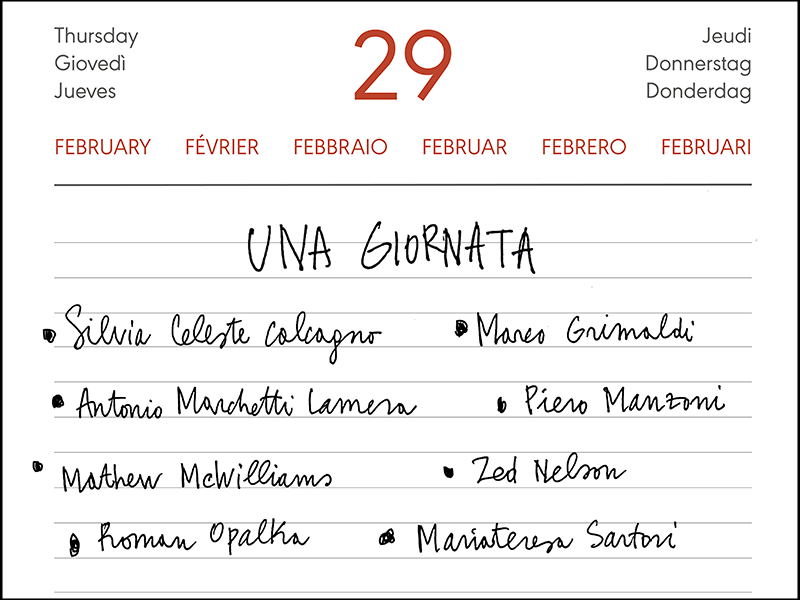 Thursday 29 Jeudi
Giovedì Donnerstag
Jueves Donderdag
FEBRUARY FÉVRIER FEBBRAIO FEBRUAR FEBRERO FEBRUARI
UNA GIORNATA
• Silvia Celeste Calcagno • Marco Grimaldi
• Antonio Marchetti Lamera • Piero Manzoni
• Mathew McWilliams • Zed Nelson
• Roman Opalka • Mariateresa Sartori